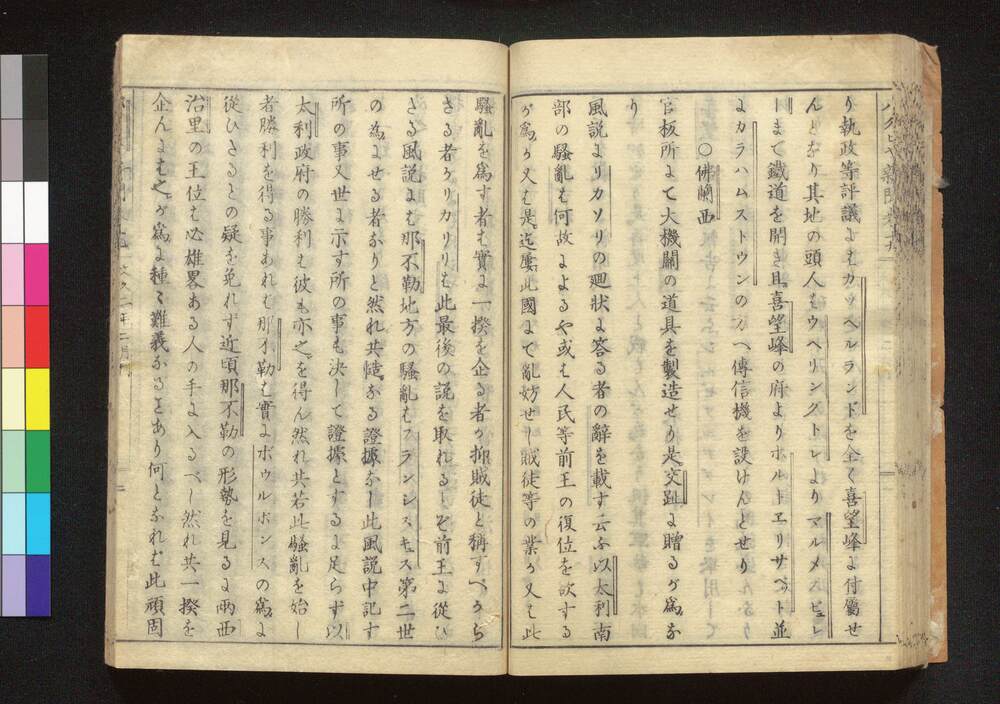 り執政等評議にもカッヘルランドを全く喜望峰に付屬せ
んとなり其地の頭人もウヘリングトレよりマルメスビュレ
ーまて鐵道を開き且喜望峰の府よりポルトヱリサベット並
にカラハムストウンの方へ傳信機を設けんとせり
○佛蘭西
官板所にて大機關の道具を製造せり是交趾に贈るが爲な
り
風説にリカソリの廻狀に答る者の辭を載す云ふ以太利南
部の騷亂も何故によるや或も人民等前王の復位を欲する
が爲か又も是迄屢此國にて亂妨せし賊徒等の業か又も此
騷亂を爲す者も實に一揆を企る者か抑賊徒と稱すべから
さる者かリカリリも此最後の説を取れるしぞ前王に從ひ
さる風説にも那不勒地方の騷亂もフランシスキュス第二世
の爲にせる者なりと然れ共慥なる證據なし此風説中記す
所の事又世に示す所の事も決して證據とするに足らず以
太利政府の勝利も彼も亦之を得ん然れ共若此騷亂を始し
者勝利を得る事あれも那不勒も實にボウルボンスの爲に
從ひさるとの疑を免れず近頃那不勒の形勢を見るに両西
治里の王位も必雄畧ある人の手に入るべし然れ共一揆を
企んにも之が爲に種々難義なるとあり何となれも此頑固